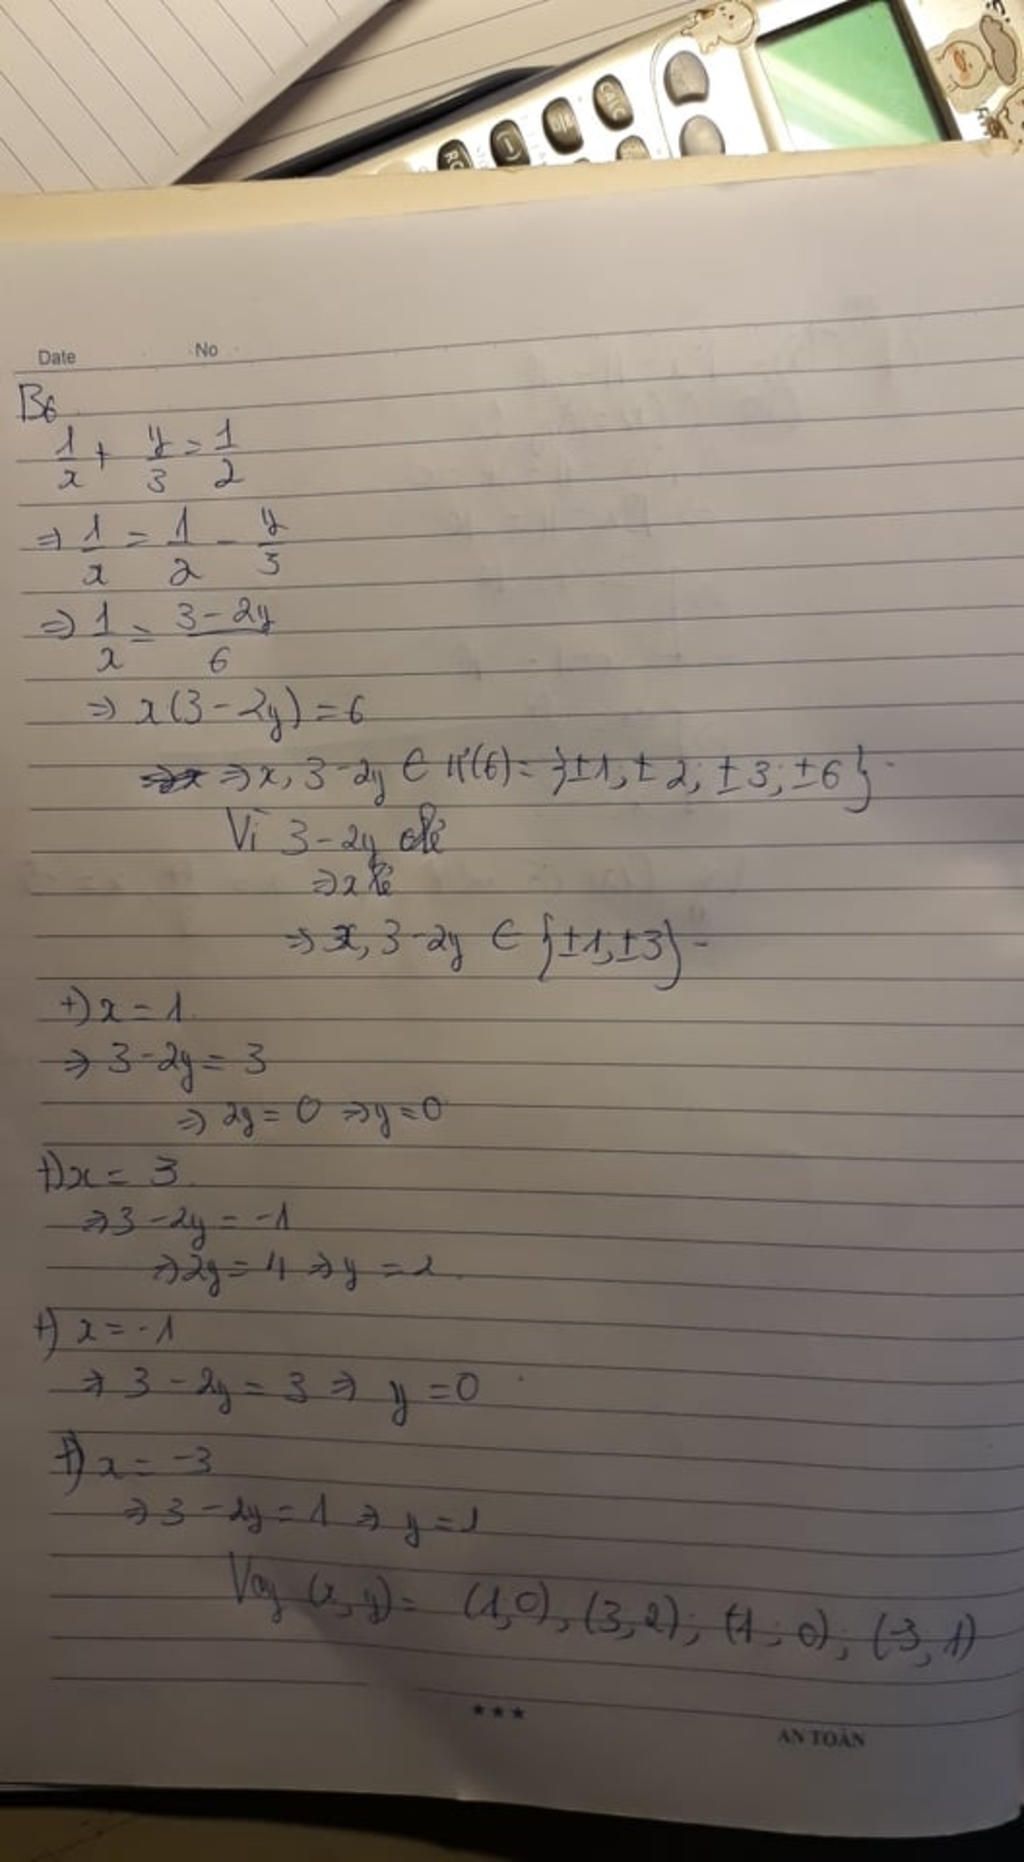 RC
CALC
Date No
B6
1/x + y/3 = 1/2
⇒ 1/x = 1/2 - y/3
⇒ 1/x = (3-2y)/6
⇒ x(3-2y) = 6
⇒ x, 3-2y ∈ Ư(6) = {±1; ±2; ±3; ±6}
Vì 3-2y lẻ
⇒ x lẻ
⇒ x, 3-2y ∈ {±1; ±3}
+) x = 1
⇒ 3-2y = 3
⇒ 2y = 0 ⇒ y = 0
+) x = 3
⇒ 3-2y = -1
⇒ 2y = 4 ⇒ y = 2
+) x = -1
⇒ 3-2y = 3 ⇒ y = 0
+) x = -3
⇒ 3-2y = 1 ⇒ y = 1
Vay (x, y) = (1,0), (3,2); (1; 0); (-3, 1)
★★★
AN TOÀN